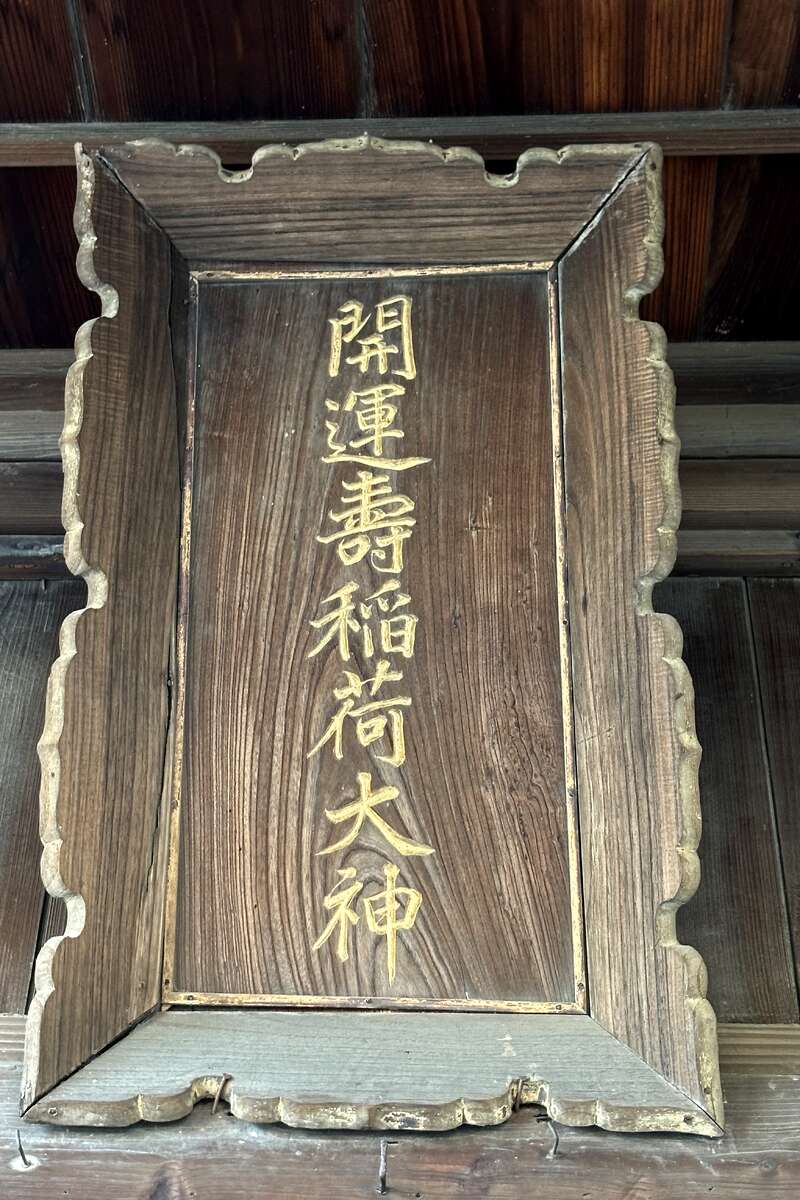 開運壽稲荷大神